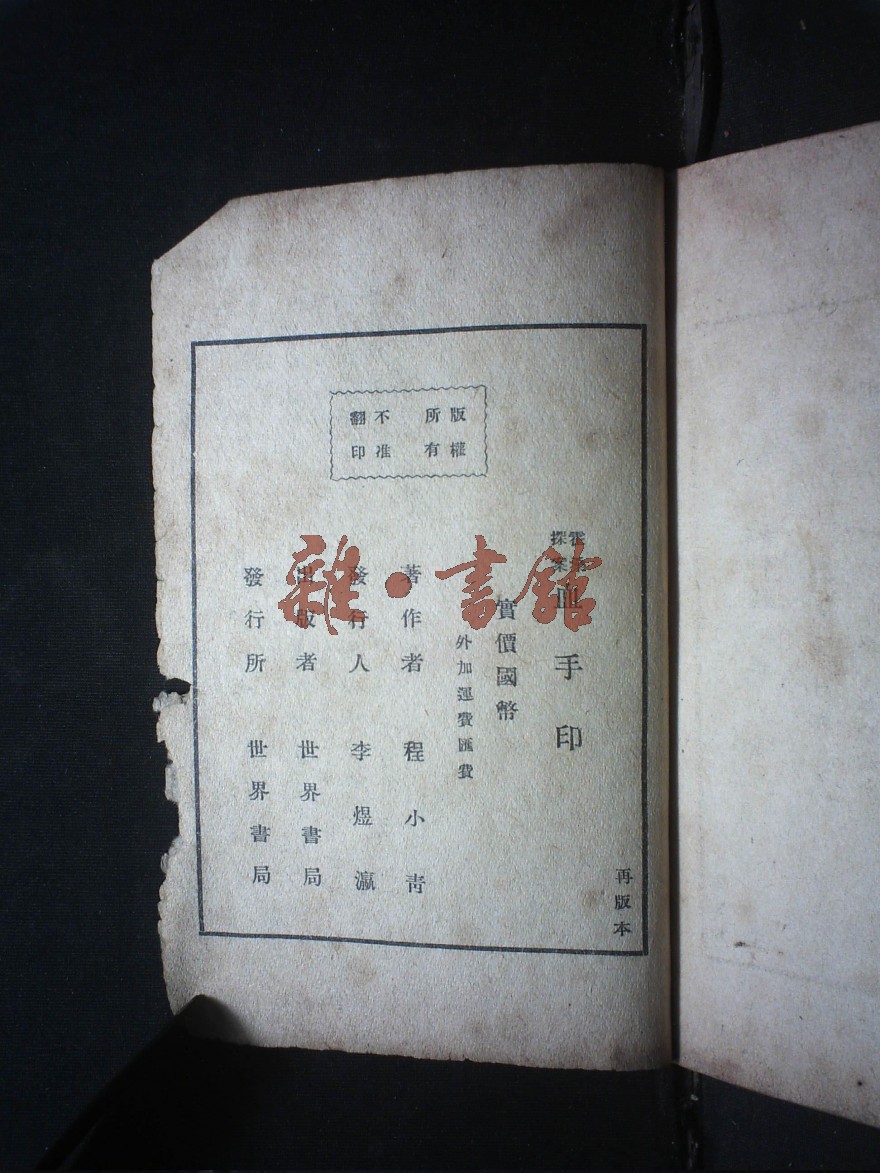 再版本
霍桑
探案
血手印
實價國幣
外加運費匯費
著作者 程小青
發行人 李煜瀛
出版者 世界書局
發行所 世界書局
版權
所有
不准
翻印
雜·書館